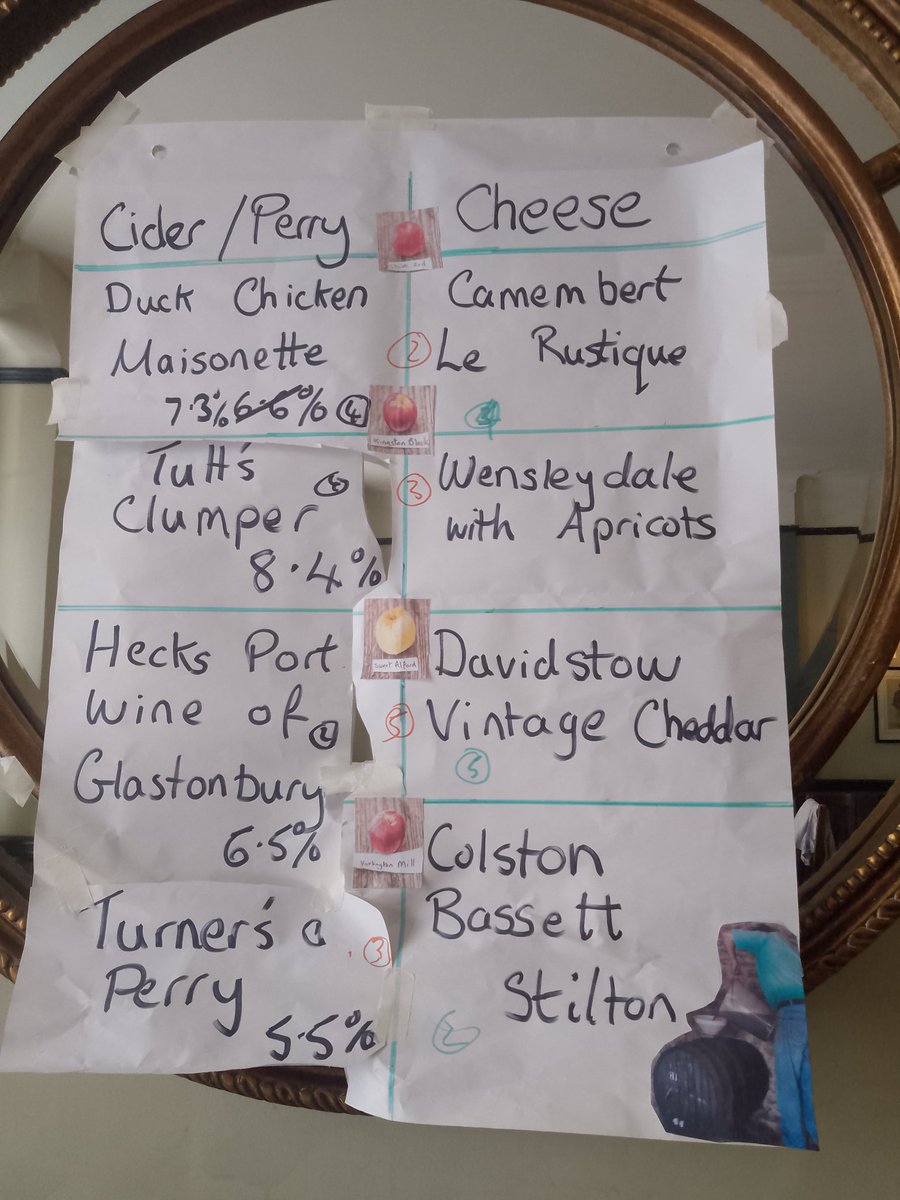 Cider/Perry
Cheese
Duck Chicken
Maisonette
7.3% 6.6% ④
Camembert
② Le Rustique
Kingston Black
Tutt's
Clumper
8.4%
③ Wensleydale
with Apricots
Hecks Port
Wine of
Glastonbury
6.5%
Sweet Alford
Davidstow
Vintage Cheddar
⑤
Yarlington Mill
Turner's
Perry
③
5.5%
Colston
Bassett
Stilton